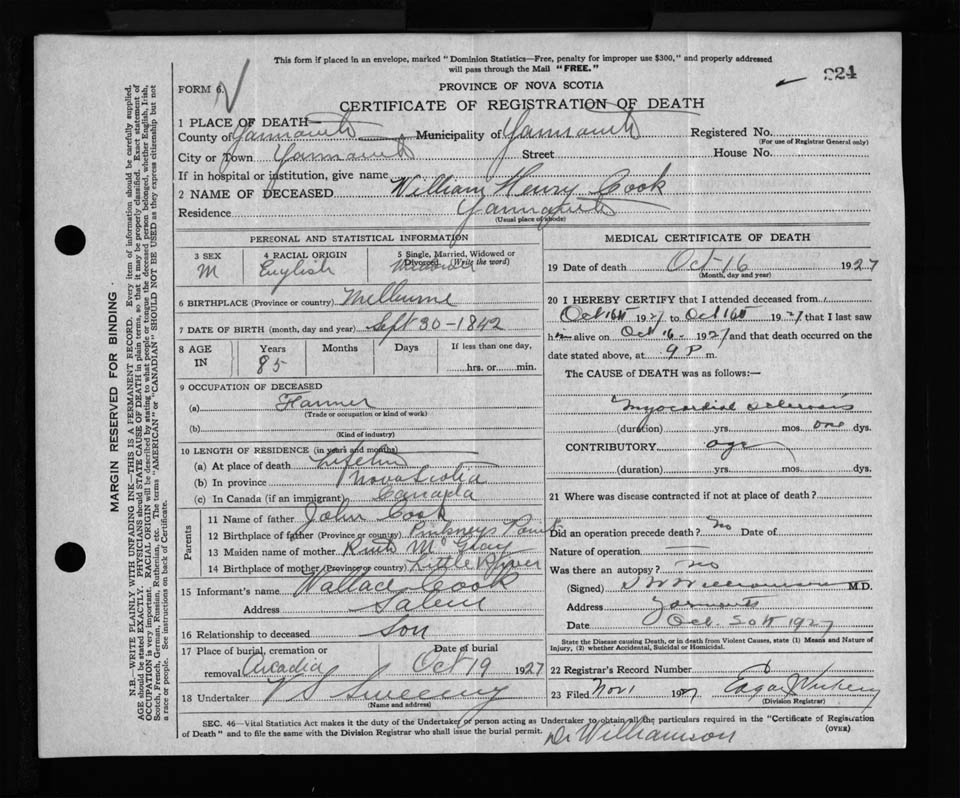 This form if placed in an envelope, marked "Dominion Statistics—Free, penalty for improper use $300," and properly addressed
will pass through the Mail "FREE."
924
FORM 6. PROVINCE OF NOVA SCOTIA
CERTIFICATE OF REGISTRATION OF DEATH
1 PLACE OF DEATH—
County of Yarmouth Municipality of Yarmouth Registered No.
(For use of Registrar General only)
City or Town Yarmouth Street House No.
If in hospital or institution, give name
2 NAME OF DECEASED William Henry Cook
Residence Yarmouth
(Usual place of abode)
PERSONAL AND STATISTICAL INFORMATION
3 SEX 4 RACIAL ORIGIN 5 Single, Married, Widowed or
Divorced (Write the word)
M English Widower
6 BIRTHPLACE (Province or country) Melburne
7 DATE OF BIRTH (month, day and year) Sept 30-1842
8 AGE Years Months Days If less than one day,
IN 85 hrs. or min.
9 OCCUPATION OF DECEASED
(a) Farmer
(Trade or occupation or kind of work)
(b)
(Kind of industry)
10 LENGTH OF RESIDENCE (in years and months)
(a) At place of death Lifetim
(b) In province Nova Scotia
(c) In Canada (if an immigrant) Canada
Parents
11 Name of father John Cook
12 Birthplace of father (Province or country) Pinkneys Point
13 Maiden name of mother Ruth McGray
14 Birthplace of mother (Province or country) Little River
15 Informant's name Wallace Cook
Address Salem
16 Relationship to deceased Son
17 Place of burial, cremation or Date of burial
removal Arcadia Oct 19 1927
18 Undertaker V S Sweeny
(Name and address)
MEDICAL CERTIFICATE OF DEATH
19 Date of death Oct-16 1927
(Month, day and year)
20 I HEREBY CERTIFY that I attended deceased from
Oct 16th 1927 to Oct 16th 1927 that I last saw
him alive on Oct 16. 1927 and that death occurred on the
date stated above, at 9 P m.
The CAUSE of DEATH was as follows:—
Myocardial Sclerosis
(duration) yrs. mos. one dys.
CONTRIBUTORY age
(duration) yrs. mos. dys.
21 Where was disease contracted if not at place of death?
Did an operation precede death? No Date of
Nature of operation —
Was there an autopsy? No
(Signed) Williamson M.D.
Address Yarmouth
Date Oct. 20th 1927
State the Disease causing Death, or in death from Violent Causes, state (1) Means and Nature of
Injury, (2) whether Accidental, Suicidal or Homicidal.
22 Registrar's Record Number
23 Filed Nov 1 1927 Edgar
(Division Registrar)
SEC. 46—Vital Statistics Act makes it the duty of the Undertaker or person acting as Undertaker to obtain all the particulars required in the "Certificate of Registration
of Death" and to file the same with the Division Registrar who shall issue the burial permit.
(OVER)
Dr Williamson
MARGIN RESERVED FOR BINDING
N.B. WRITE PLAINLY WITH UNFADING INK—THIS IS A PERMANENT RECORD. Every item of information should be carefully supplied.
AGE should be stated EXACTLY. PHYSICIANS should STATE CAUSE OF DEATH in plain terms, so that it may be properly classified. Exact statement of
OCCUPATION is very important. RACIAL ORIGIN will be described by stating to what people or tongue the deceased person belonged, whether English, Irish,
Scotch, French, German, Russian, Ruthenian, etc. The terms "AMERICAN" or "CANADIAN" SHOULD NOT BE USED as they express citizenship but not
a race or people. See instructions on back of Certificate.